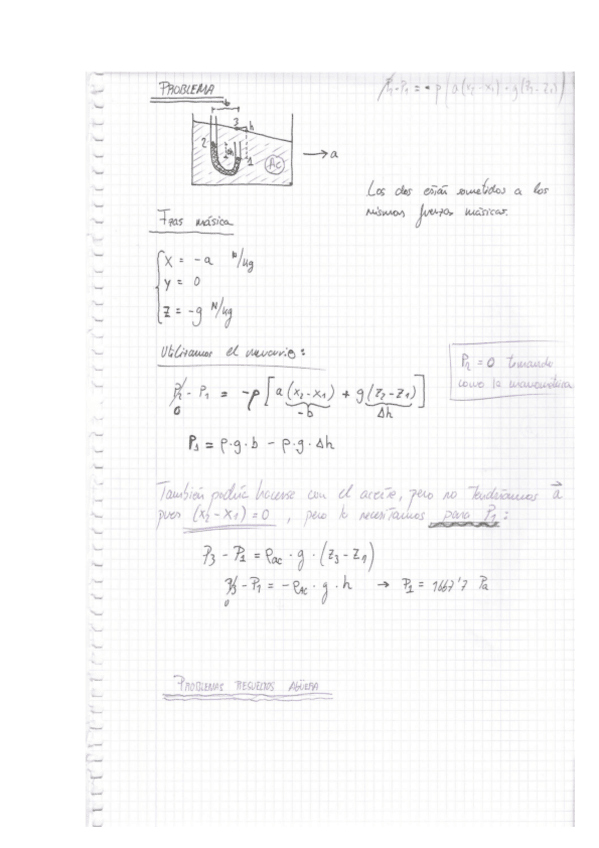 PROBLEMA
P₂-P₁ = -ρ[a(x₂-x₁)+g(z₂-z₁)]
b
3
h
2
Δh
1
Ac
→ a
Los dos están sometidos a los
mismas fuerzas másicas.
Fzas másica
X = -a N/kg
Y = 0
Z = -g N/kg
Utilizamos el mercurio:
P₂ = 0 tomando
como la manométrica
P₂ - P₁ = -ρ[a(x₂-x₁) + g(z₂-z₁)]
0
-b
Δh
P₁ = ρ·g·b - ρ·g·Δh
También podría hacerse con el aceite, pero no tendríamos a⃗
pues (x₂-x₁)=0, pero lo necesitamos para P₁:
P₃ - P₁ = ρac · g · (z₃-z₁)
P₃ - P₁ = -ρAc · g · h → P₁ = 1667'7 Pa
0
PROBLEMAS RESUELTOS AGÜERA